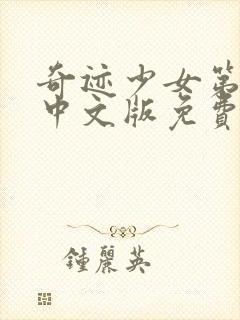 奇迹少女第
中文版免費
鍾麗英